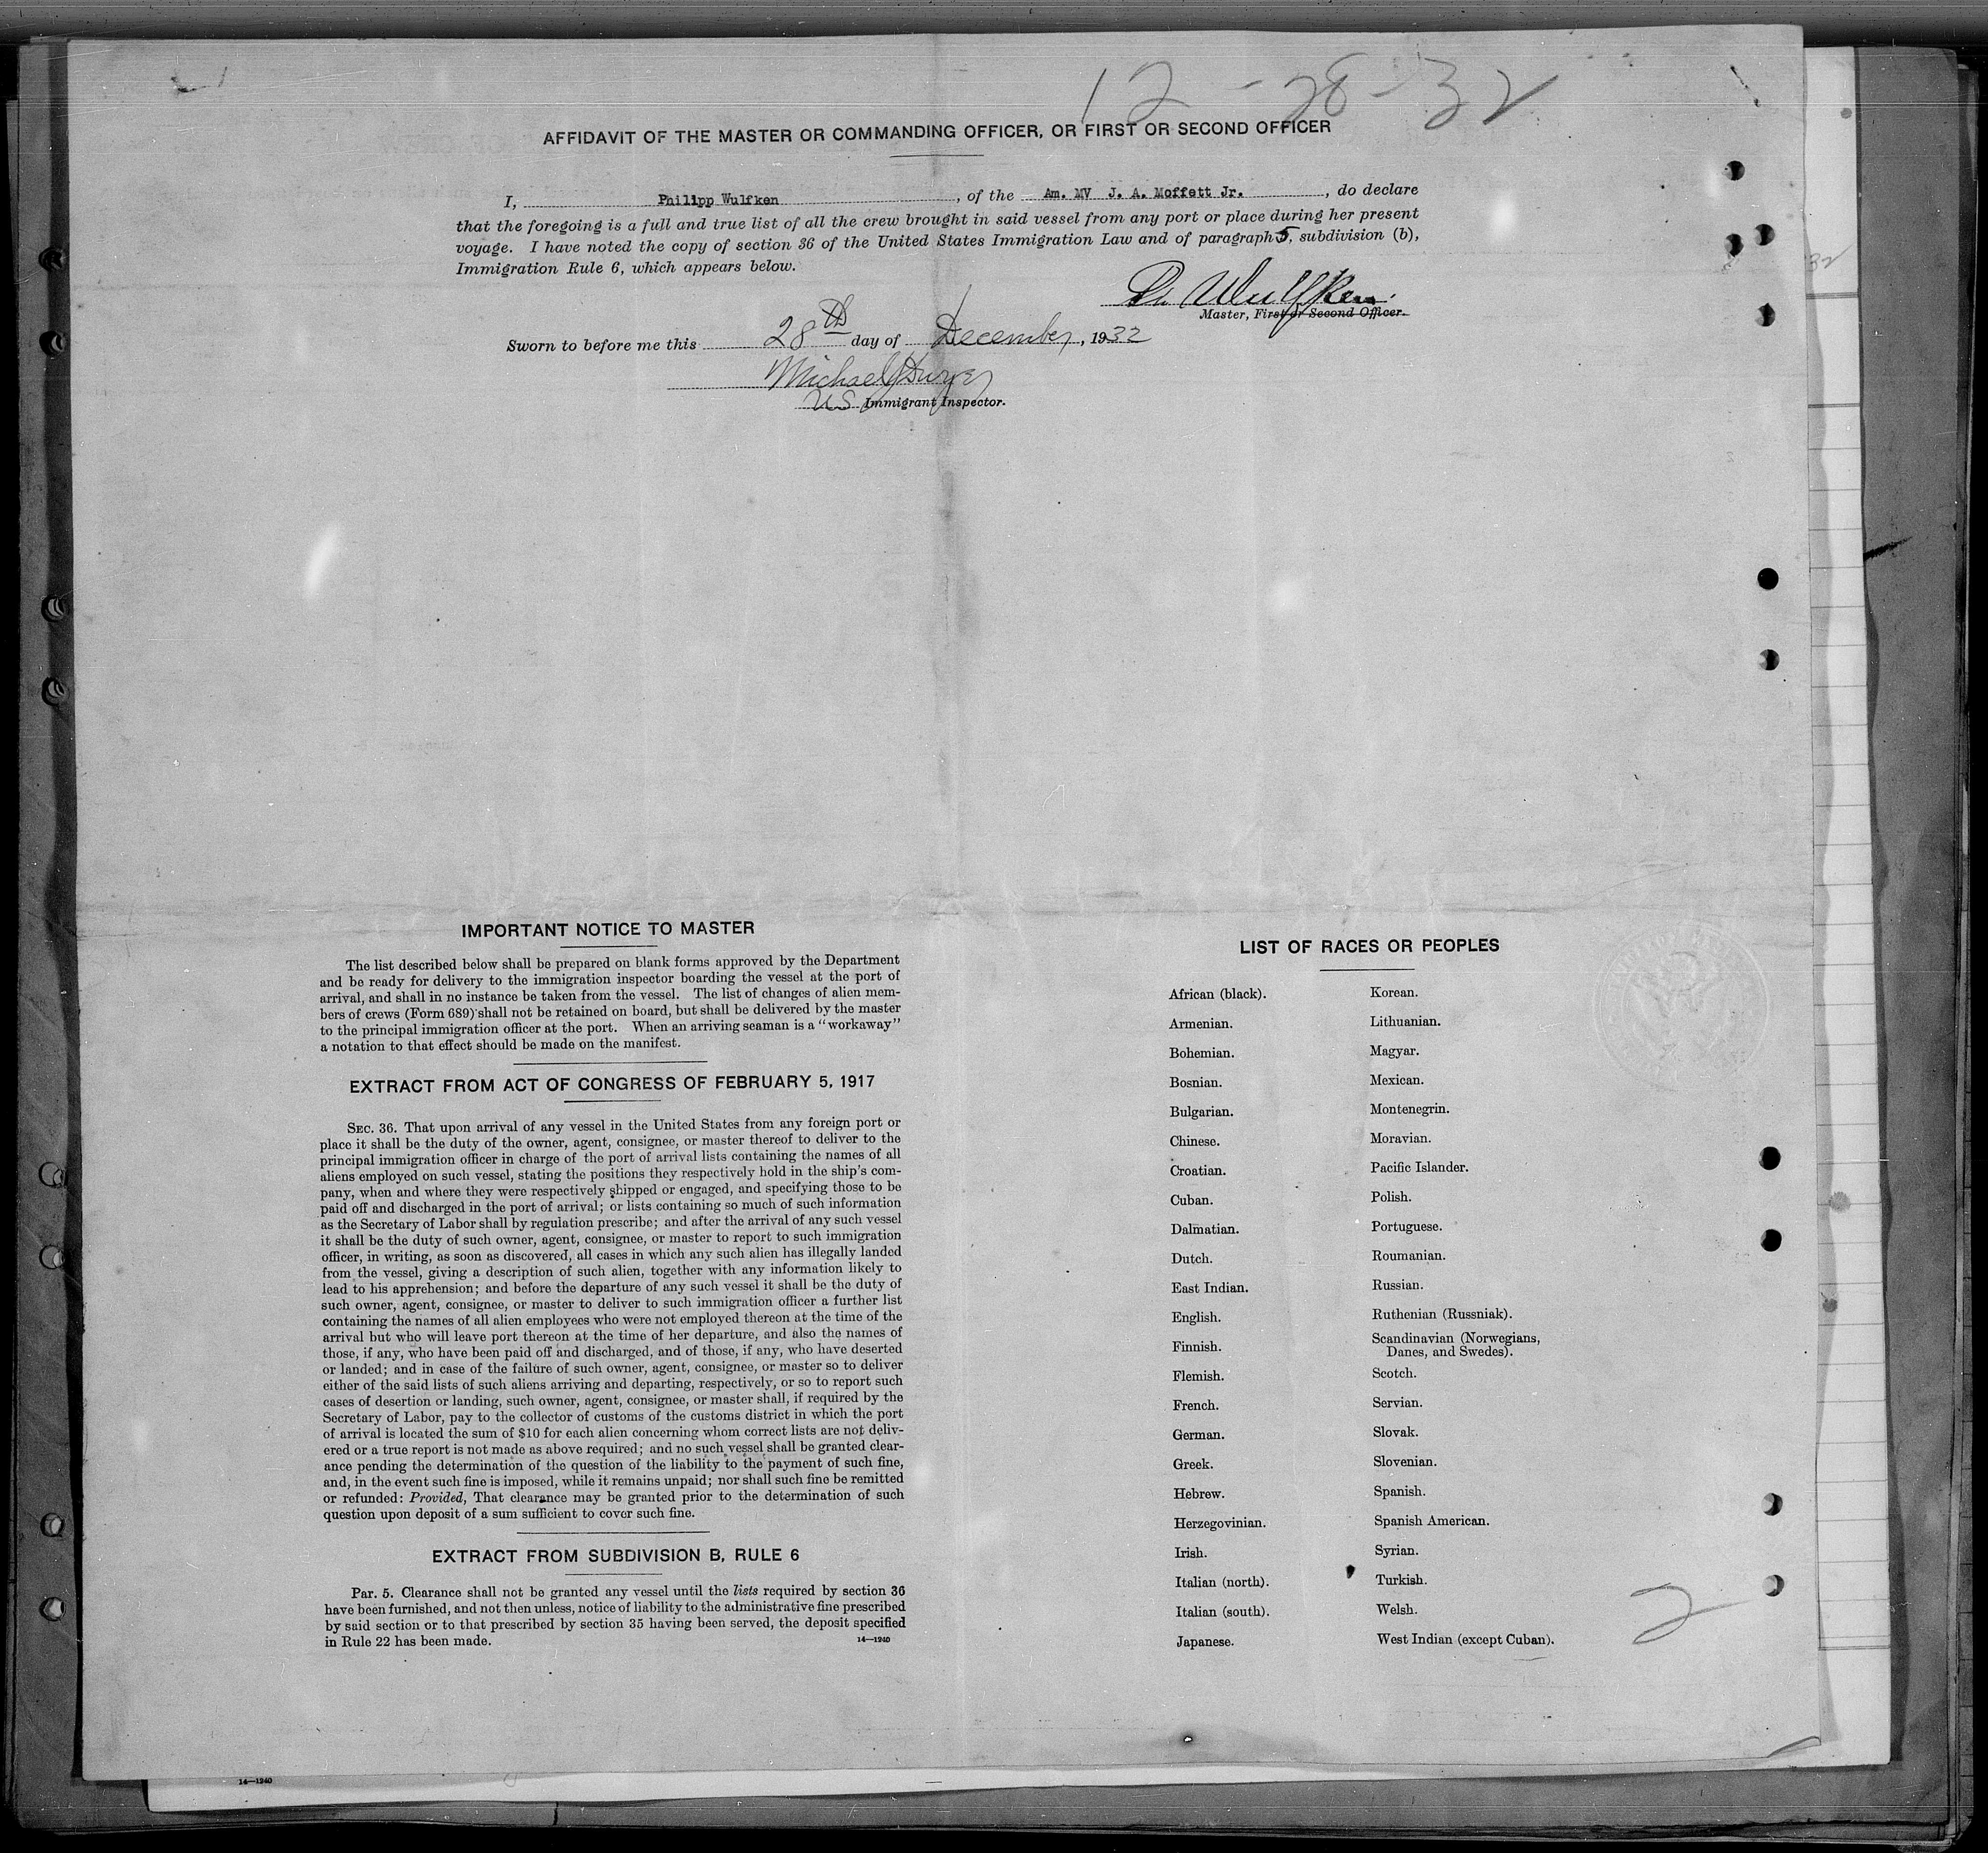 12-28-32
AFFIDAVIT OF THE MASTER OR COMMANDING OFFICER, OR FIRST OR SECOND OFFICER
I, Philipp Wulfken, of the Am. MV J. A. Moffett Jr., do declare
that the foregoing is a full and true list of all the crew brought in said vessel from any port or place during her present
voyage. I have noted the copy of section 36 of the United States Immigration Law and of paragraph 5, subdivision (b),
Immigration Rule 6, which appears below.
Ph Wulfken
Master, First or Second Officer.
Sworn to before me this 28th day of December, 1932
Michael
US Immigrant Inspector.
32
IMPORTANT NOTICE TO MASTER
The list described below shall be prepared on blank forms approved by the Department
and be ready for delivery to the immigration inspector boarding the vessel at the port of
arrival, and shall in no instance be taken from the vessel. The list of changes of alien mem-
bers of crews (Form 689) shall not be retained on board, but shall be delivered by the master
to the principal immigration officer at the port. When an arriving seaman is a "workaway"
a notation to that effect should be made on the manifest.
EXTRACT FROM ACT OF CONGRESS OF FEBRUARY 5, 1917
SEC. 36. That upon arrival of any vessel in the United States from any foreign port or
place it shall be the duty of the owner, agent, consignee, or master thereof to deliver to the
principal immigration officer in charge of the port of arrival lists containing the names of all
aliens employed on such vessel, stating the positions they respectively hold in the ship's com-
pany, when and where they were respectively shipped or engaged, and specifying those to be
paid off and discharged in the port of arrival; or lists containing so much of such information
as the Secretary of Labor shall by regulation prescribe; and after the arrival of any such vessel
it shall be the duty of such owner, agent, consignee, or master to report to such immigration
officer, in writing, as soon as discovered, all cases in which any such alien has illegally landed
from the vessel, giving a description of such alien, together with any information likely to
lead to his apprehension; and before the departure of any such vessel it shall be the duty of
such owner, agent, consignee, or master to deliver to such immigration officer a further list
containing the names of all alien employees who were not employed thereon at the time of the
arrival but who will leave port thereon at the time of her departure, and also the names of
those, if any, who have been paid off and discharged, and of those, if any, who have deserted
or landed; and in case of the failure of such owner, agent, consignee, or master so to deliver
either of the said lists of such aliens arriving and departing, respectively, or so to report such
cases of desertion or landing, such owner, agent, consignee, or master shall, if required by the
Secretary of Labor, pay to the collector of customs of the customs district in which the port
of arrival is located the sum of $10 for each alien concerning whom correct lists are not deliv-
ered or a true report is not made as above required; and no such vessel shall be granted clear-
ance pending the determination of the question of the liability to the payment of such fine,
and, in the event such fine is imposed, while it remains unpaid; nor shall such fine be remitted
or refunded: Provided, That clearance may be granted prior to the determination of such
question upon deposit of a sum sufficient to cover such fine.
EXTRACT FROM SUBDIVISION B, RULE 6
Par. 5. Clearance shall not be granted any vessel until the lists required by section 36
have been furnished, and not then unless, notice of liability to the administrative fine prescribed
by said section or to that prescribed by section 35 having been served, the deposit specified
in Rule 22 has been made.
14—1240
LIST OF RACES OR PEOPLES
African (black).
Armenian.
Bohemian.
Bosnian.
Bulgarian.
Chinese.
Croatian.
Cuban.
Dalmatian.
Dutch.
East Indian.
English.
Finnish.
Flemish.
French.
German.
Greek.
Hebrew.
Herzegovinian.
Irish.
Italian (north).
Italian (south).
Japanese.
Korean.
Lithuanian.
Magyar.
Mexican.
Montenegrin.
Moravian.
Pacific Islander.
Polish.
Portuguese.
Roumanian.
Russian.
Ruthenian (Russniak).
Scandinavian (Norwegians,
Danes, and Swedes).
Scotch.
Servian.
Slovak.
Slovenian.
Spanish.
Spanish American.
Syrian.
Turkish.
Welsh.
West Indian (except Cuban).
2
14—1240